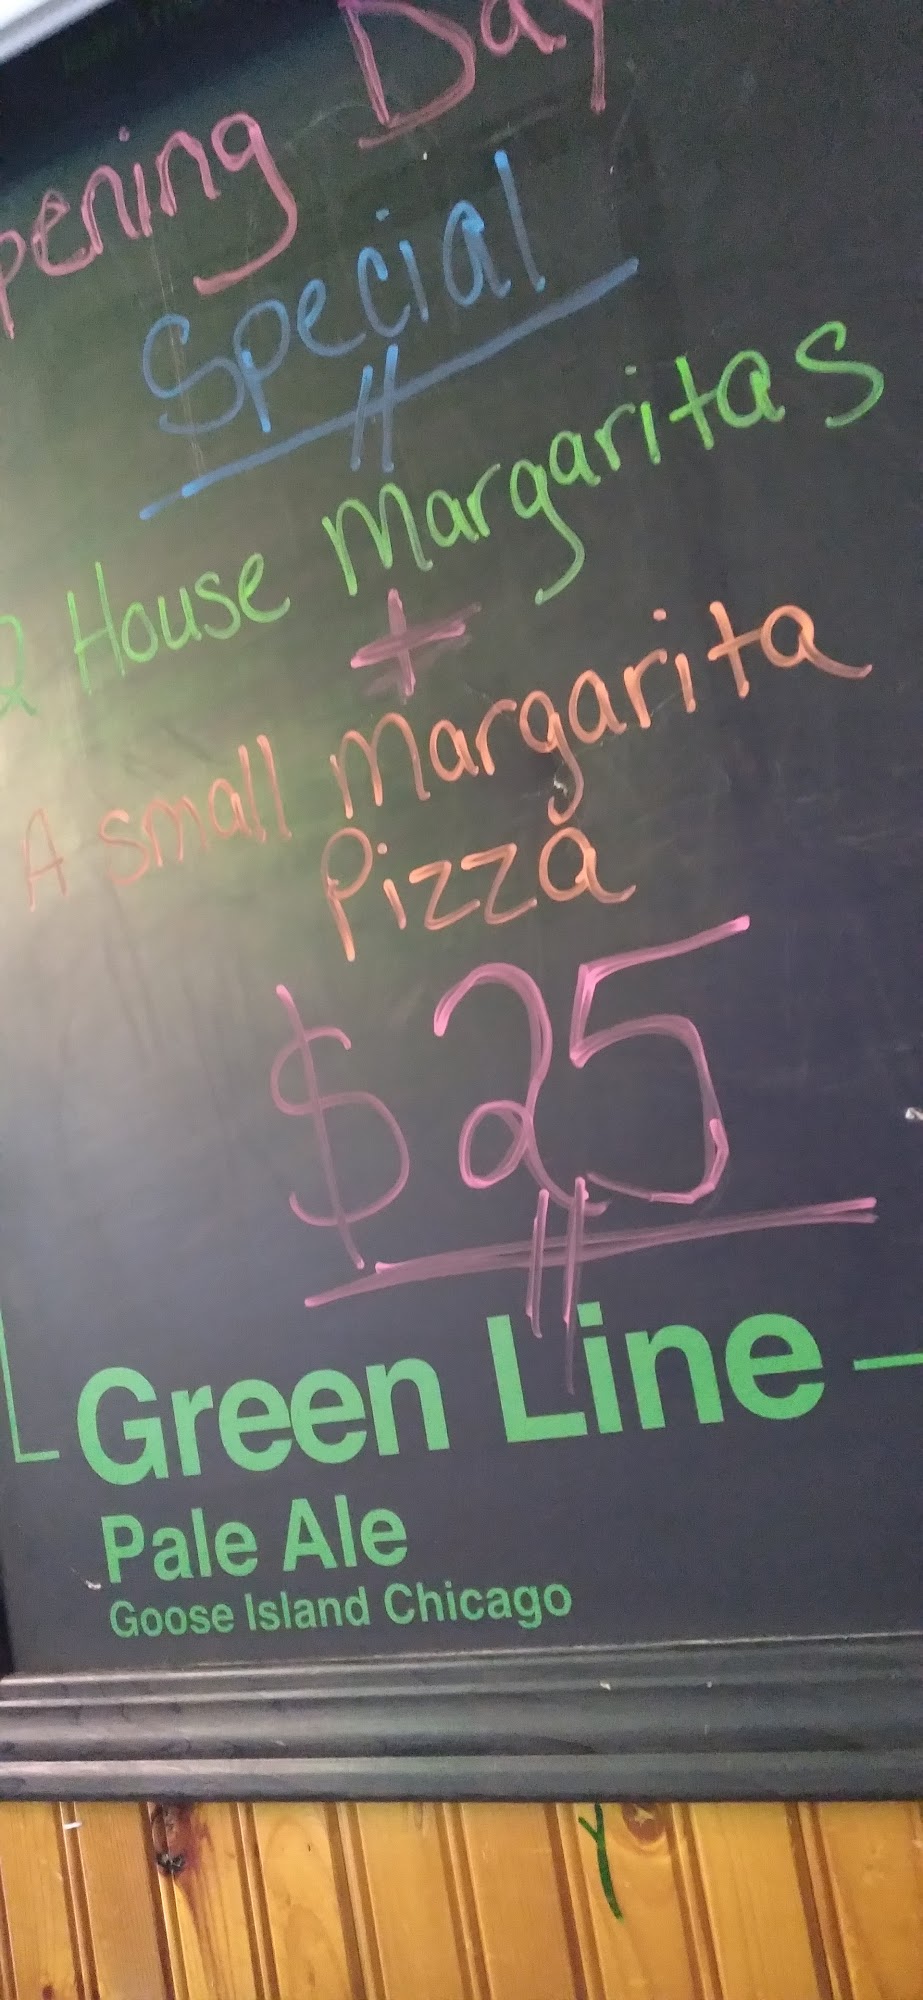 pening Day
Special
2 House Margaritas
+
A small Margarita
Pizza
$25
Green Line
Pale Ale
Goose Island Chicago